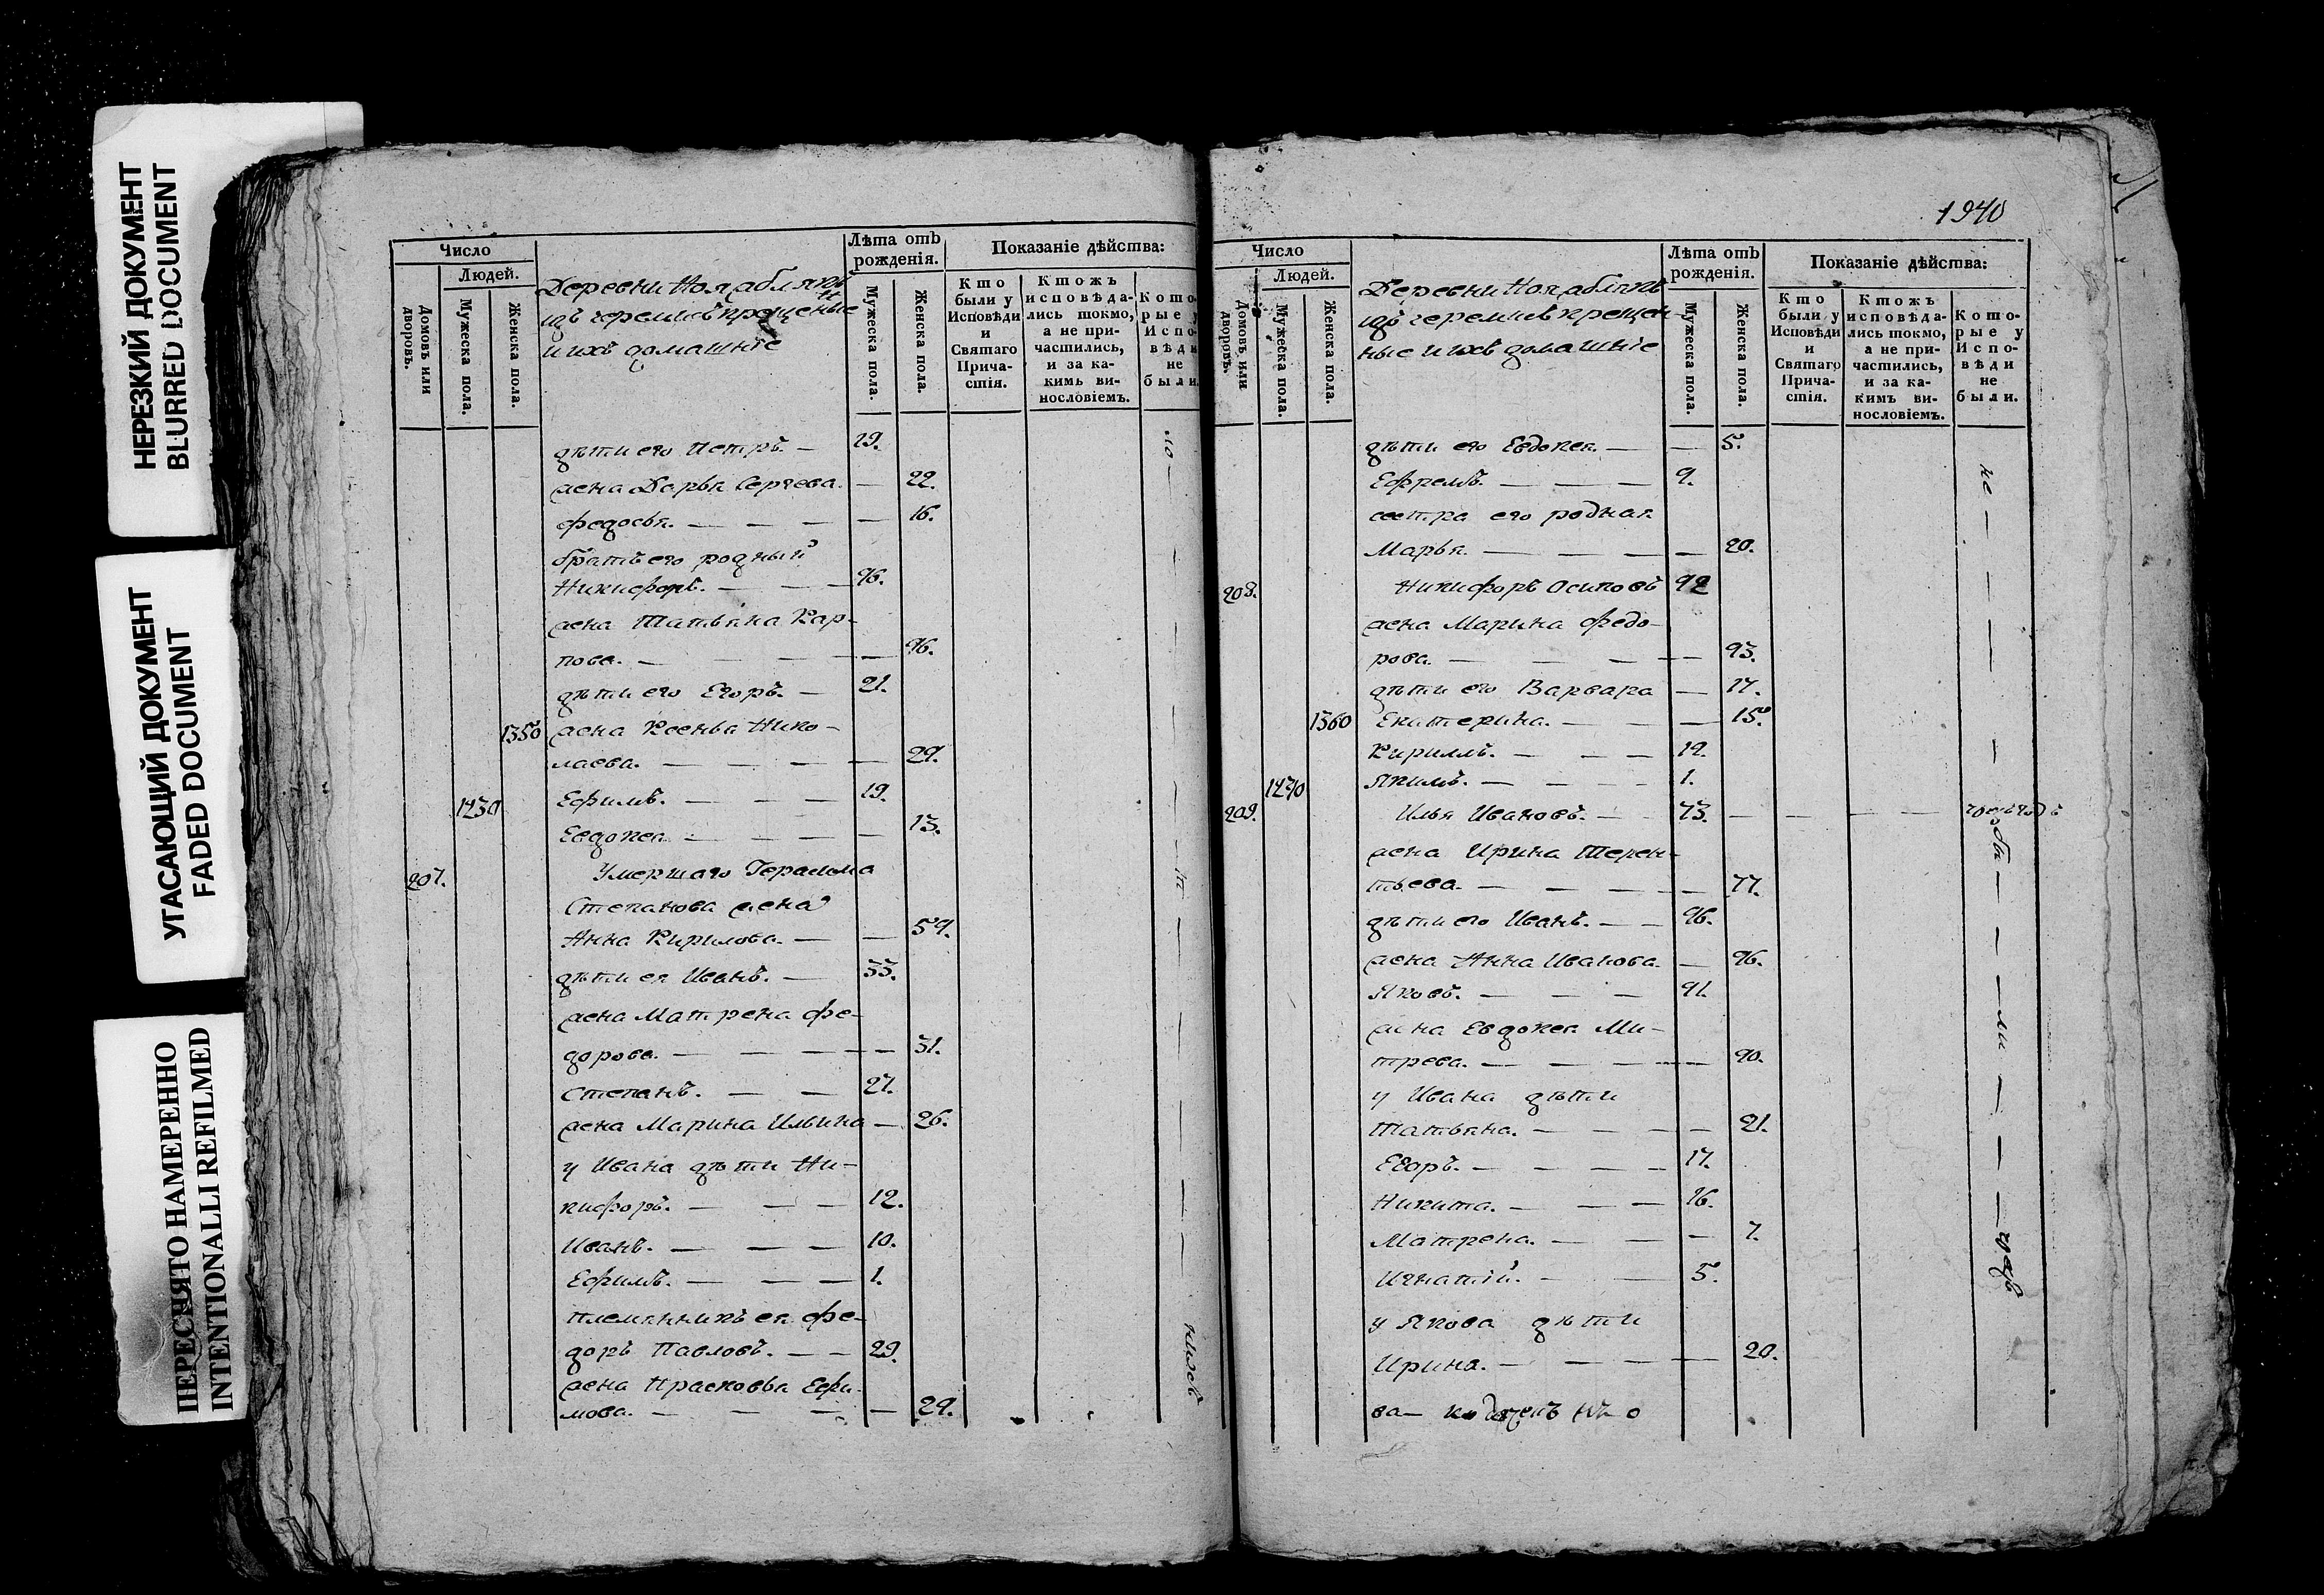 НЕРЕЗКИЙ ДОКУМЕНТ
BLURRED DOCUMENT
УГАСАЮЩИЙ ДОКУМЕНТ
FADED DOCUMENT
ПЕРЕСНЯТО НАМЕРЕННО
INTENTIONALLI REFILMED
Число
Людей.
Домовъ или дворовъ.
Мужеска пола.
Женска пола.
Деревни
изъ черемисъ крещеные
и ихъ домашніе
Лѣта отъ рожденія.
Мужеска пола.
Женска пола.
Показаніе дѣйства:
Кто были у Исповѣди и Святаго Прича-стія.
Ктожъ исповѣда-лись токмо, а не при-частились, и за ка-кимъ ви-нословіемъ.
Кото-рые у Испо-вѣди не были.
дѣти его Петръ. — 29.
жена Дарья Сергеева. — 22.
Федосья. — — — — 16.
братъ его родный
Никифоръ. — — — 46.
жена Татьяна Кар-
пова. — — — — 46.
дѣти его Егоръ. — 21.
1350 жена Ксенья Нико-
лаева. — — — — 24.
1430 Ефимъ. — — — 19.
Евдокея. — — — — 13.
207. Умершаго Герасима
Степанова жена
Анна Кирилова. — — 54.
дѣти ея Иванъ. — 33.
жена Матрена Фе-
дорова. — — — — — 31.
Степанъ. — — 27.
жена Марина Ильина — 26.
у Ивана дѣти Ни-
кифоръ. — — — 12.
Иванъ. — — — 10.
Ефимъ. — — — 1.
племянникъ ея Фе-
доръ Павловъ. — — 29.
жена Прасковья Ефи-
мова. — — — — 29.
1940
Число
Людей.
Домовъ или дворовъ.
Мужеска пола.
Женска пола.
Деревни
изъ черемисъ крещен-
ные и ихъ домашніе
Лѣта отъ рожденія.
Мужеска пола.
Женска пола.
Показаніе дѣйства:
Кто были у Исповѣди и Святаго Прича-стія.
Ктожъ исповѣда-лись токмо, а не при-частились, и за ка-кимъ ви-нословіемъ.
Кото-рые у Испо-вѣди не были.
дѣти его Евдокея. — — 5.
Ефремъ. — — — 9.
сестра его родная
Марья. — — — — — 20.
208. Никифоръ Осиповъ 42
жена Марина Федо-
рова. — — — — 43.
дѣти его Варвара — 17.
1360 Екатерина. — — — 15.
Кирилъ. — — — 12.
1440 Якимъ. — — — — 1.
209. Илья Ивановъ. — — 73. — — — —
жена Ирина Терен-
тьева. — — — — — 77.
дѣти его Иванъ. — — 46.
жена Анна Иванова. — 46.
Яковъ. — — — 41.
жена Евдокея Ми-
трева. — — — — — 40.
у Ивана дѣти
Татьяна. — — — — — 21.
Егоръ. — — — — 17.
Никита. — — — 16.
Матрена. — — — — 7.
Игнатій. — — 5.
у Якова дѣти
Ирина. — — — — — 20.